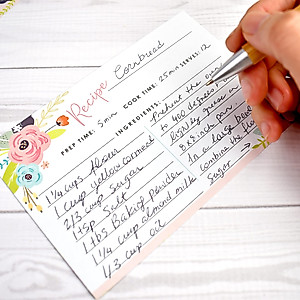 Recipe Cornbread
PREP TIME: 5 min COOK TIME: 25 min SERVES: 12
INGREDIENTS:
1 1/4 cups flour
1 cup yellow cornmeal
2/3 cup sugar
1 tsp salt
1 tbs Baking Powder
1 1/4 cup almond milk
1/3 cup oil
Preheat the oven
to 400 degrees
lightly grease an
8x8 inch pan
In a large bowl
combine the flour
sugar